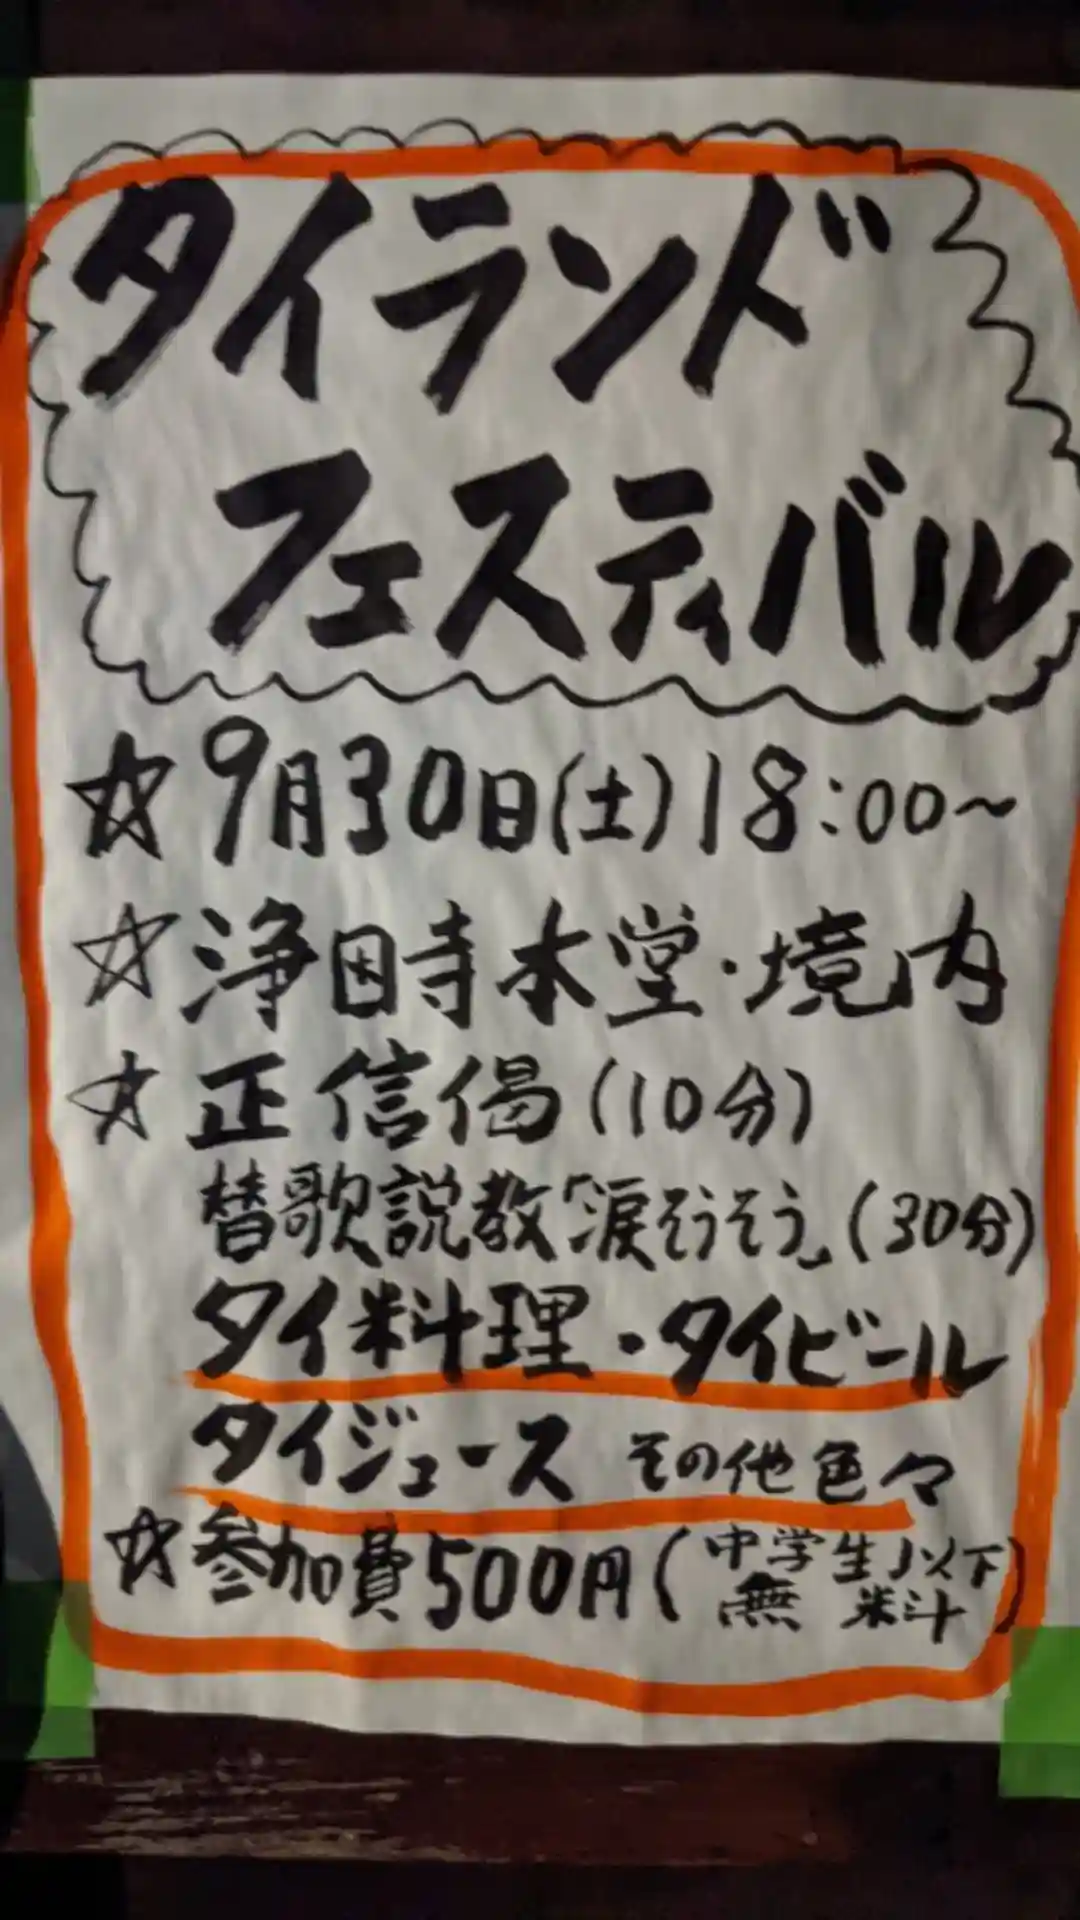 タイランド
フェスティバル
☆9月30日(土)18:00~
☆浄因寺本堂・境内
☆正信偈(10分)
替歌説教「涙そうそう」(30分)
タイ料理・タイビール
タイジュース その他色々
☆参加費500円(中学生以下
無料)